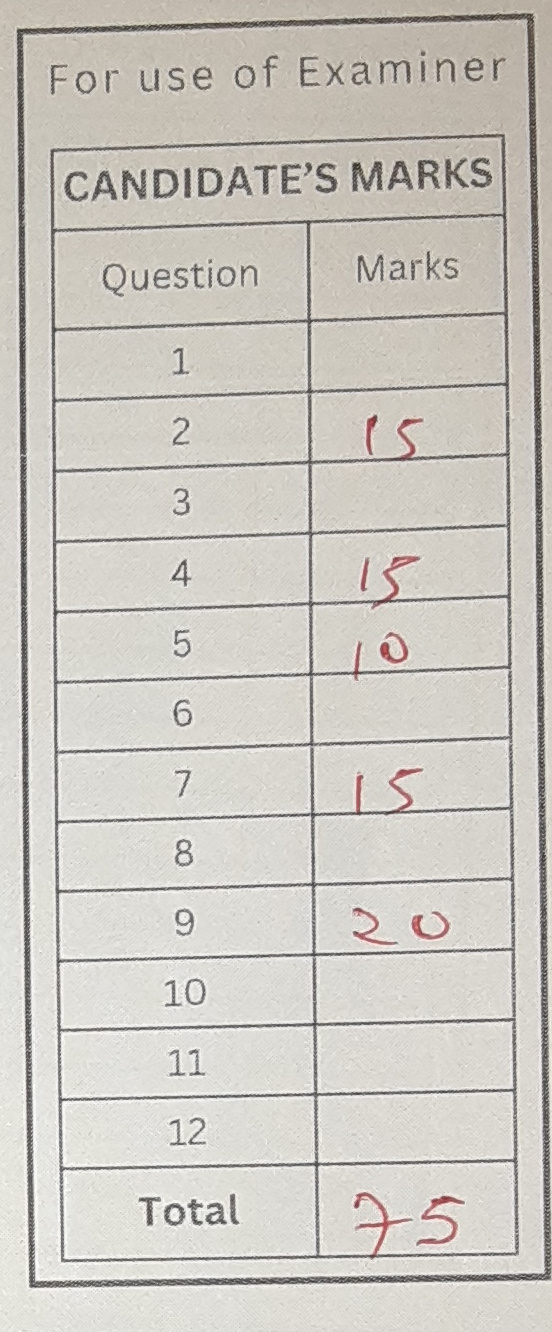 For use of Examiner
CANDIDATE'S MARKS
Question Marks
1
2 15
3
4 15
5 10
6
7 15
8
9 20
10
11
12
Total 75